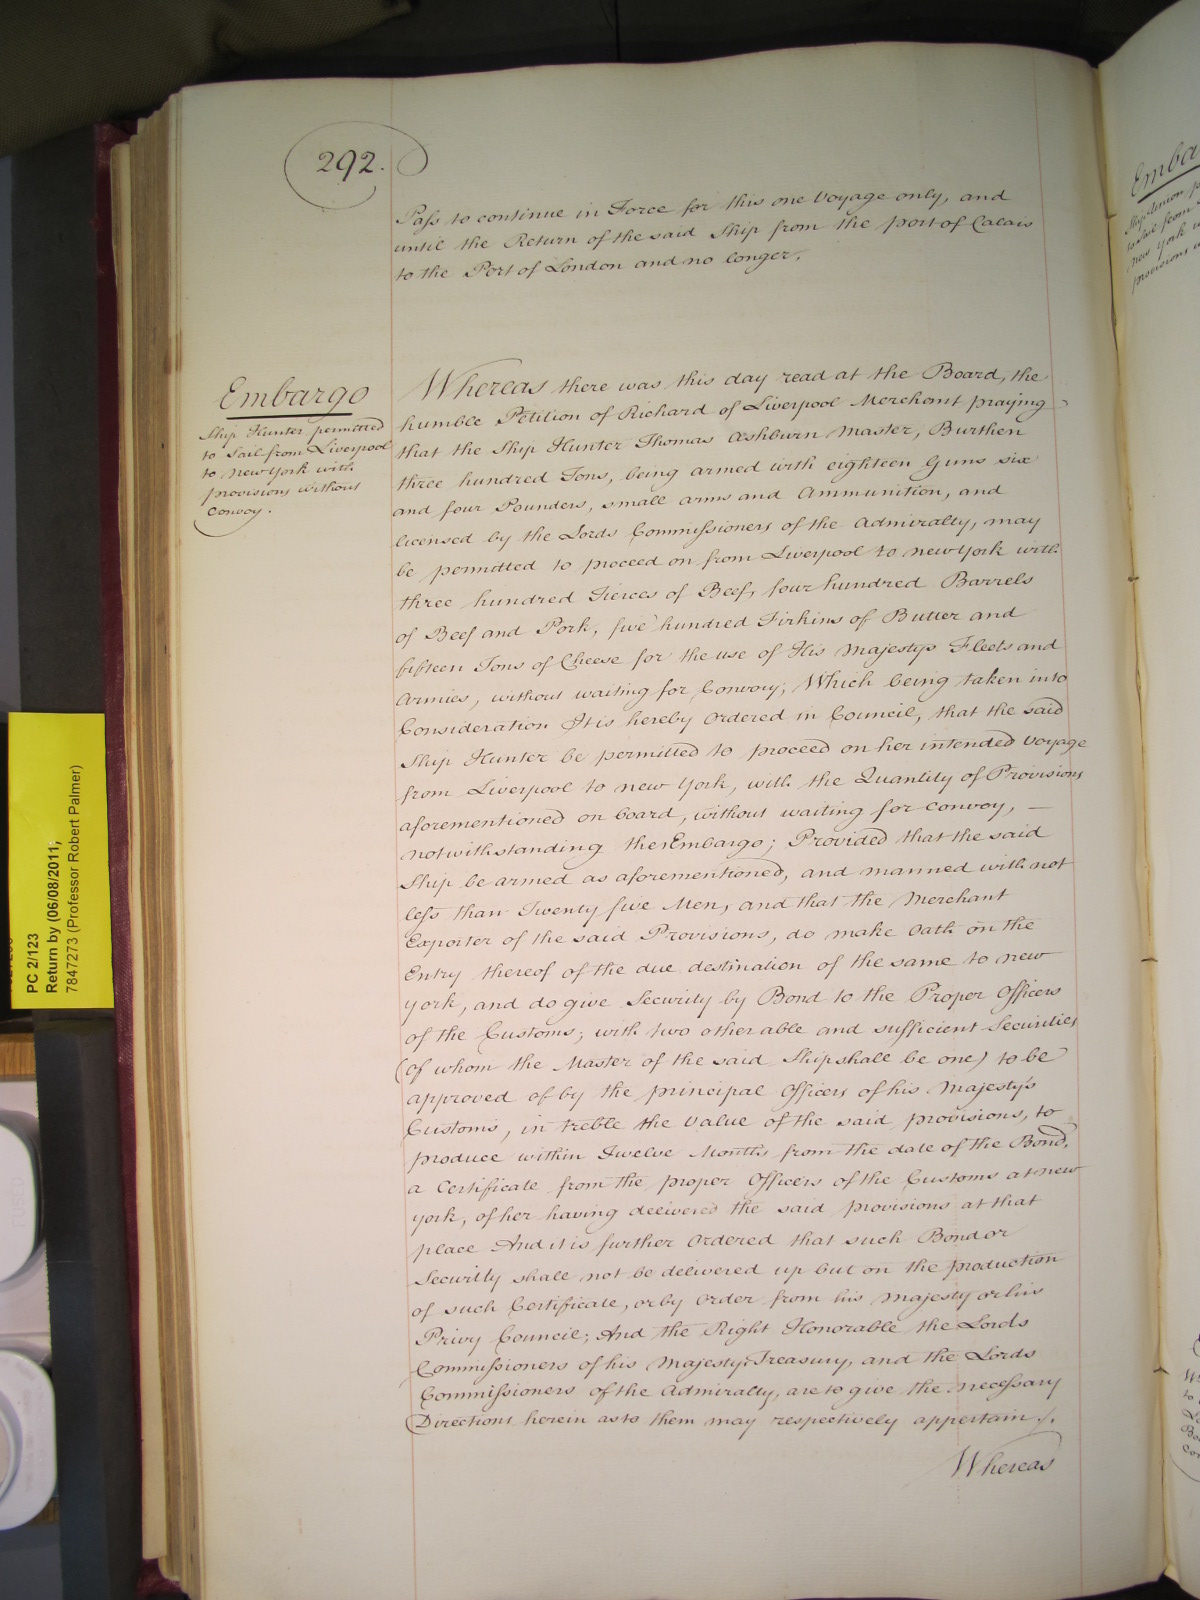 292.
Pass to continue in Force for this one Voyage only, and
until the Return of the said Ship from the port of Calais
to the Port of London and no longer.
Embargo
Ship Hunter permitted
to Sail from Liverpool
to New York with
provisions without
Convoy.
Whereas there was this day read at the Board, the
humble Petition of Richard of Liverpool Merchant praying
that the Ship Hunter Thomas Ashburn Master, Burthen
three hundred Tons, being armed with eighteen Guns six
and four Pounders, small arms and Ammunition, and
licensed by the Lords Commissioners of the Admiralty, may
be permitted to proceed on from Liverpool to New York with
three hundred Tierces of Beef, four hundred Barrels
of Beef and Pork, five hundred Firkins of Butter and
fifteen Tons of Cheese for the use of His Majestys Fleets and
Armies, without waiting for Convoy; Which being taken into
Consideration It is hereby Ordered in Council, that the said
Ship Hunter be permitted to proceed on her intended Voyage
from Liverpool to New York, with the Quantity of Provisions
aforementioned on board, without waiting for Convoy, —
notwithstanding the Embargo; Provided that the said
Ship be armed as aforementioned, and manned with not
less than Twenty five Men, and that the Merchant
Exporter of the said Provisions, do make Oath on the
Entry thereof of the due destination of the same to New
York, and do give Security by Bond to the Proper Officers
of the Customs; with two other able and sufficient Securities
(of whom the Master of the said Ship shall be one) to be
approved of by the principal Officers of his Majesty's
Customs, in treble the Value of the said provisions, to
produce within Twelve Months from the date of the Bond,
a Certificate from the proper Officers of the Customs at New
York, of her having delivered the said provisions at that
place And it is further Ordered that such Bond or
Security shall not be delivered up but on the production
of such Certificate, or by Order from his Majesty or his
Privy Council; And the Right Honorable the Lords
Commissioners of his Majestys Treasury, and the Lords
Commissioners of the Admiralty, are to give the necessary
Directions herein as to them may respectively appertain ./.
Whereas
PC 2/123
Return by (06/08/2011;
7847273 (Professor Robert Palmer)
Emba
to Sail from
New York
provisions